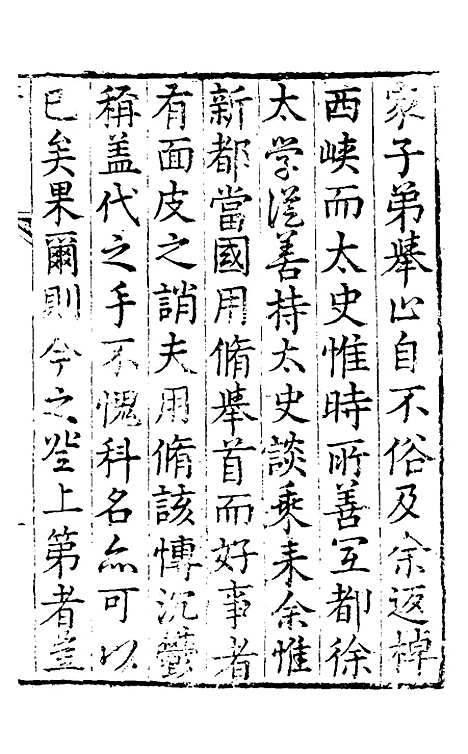 家子弟舉止自不俗及余返棹
西峽而太史惟時所善宣都徐
太学從善持太史談乘来余惟
新都當國用脩舉首而好事者
有面皮之誚夫用脩該慱沉欝
稱盖代之手不愧科名亦可以
已矣果爾則今之登上第者豈